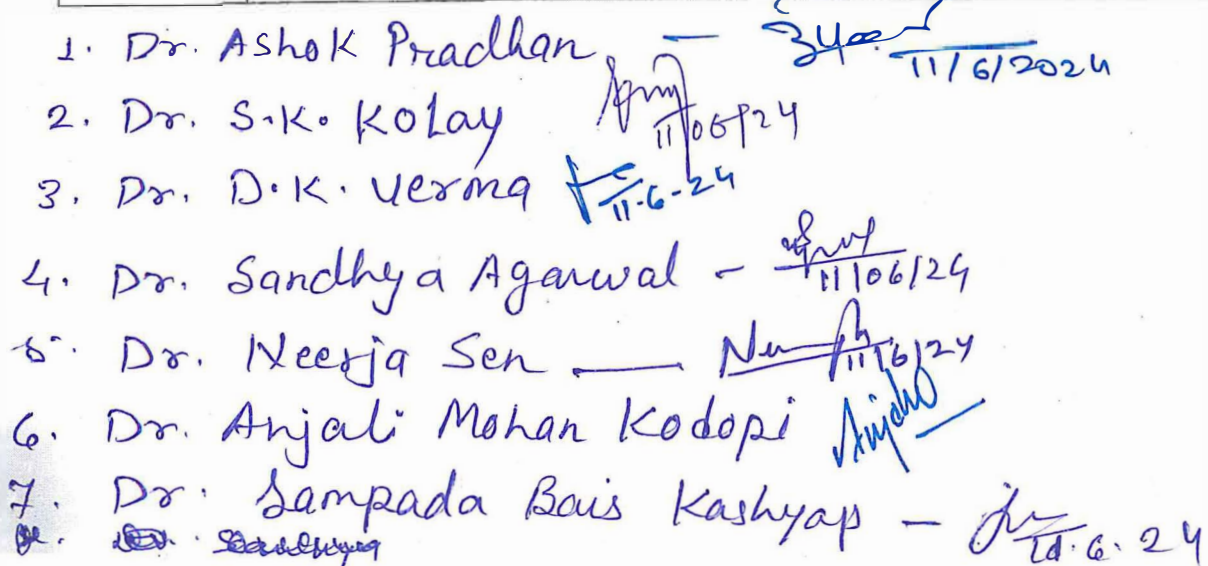 1. Dr. Ashok Pradhan - 11/6/2024
2. Dr. S.K. Kolay 11/06/24
3. Dr. D.K. Verma 11-6-24
4. Dr. Sandhya Agarwal - 11/06/24
5. Dr. Neerja Sen — 11/6/24
6. Dr. Anjali Mohan Kodopi Anjali
7. Dr. Sampada Bais Kashyap - 11.6.24